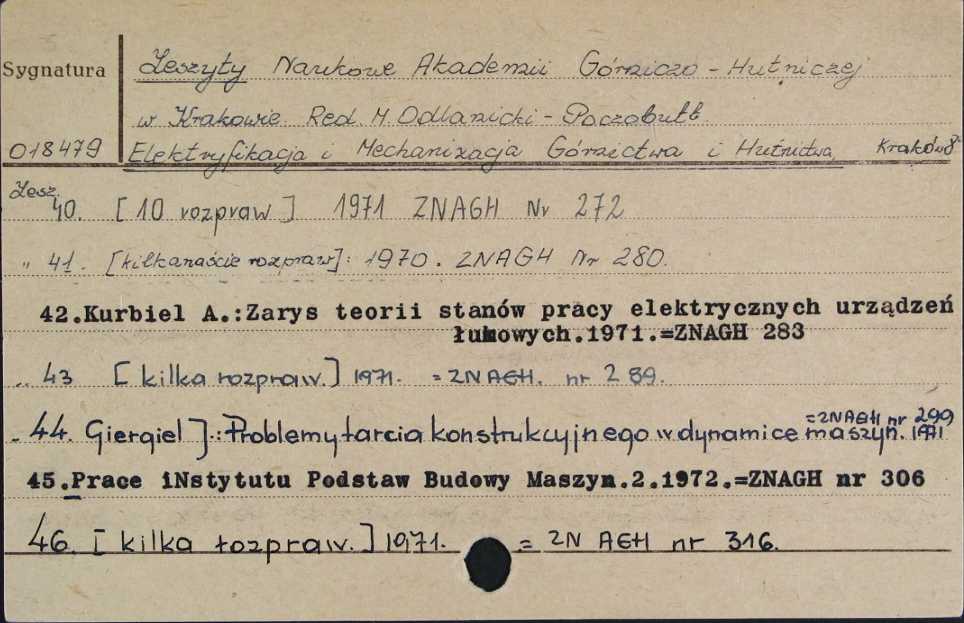 Sygnatura
Zeszyty Naukowe Akademii Górniczo-Hutniczej
w Krakowie. Red. M. Odlanicki-Poczobutt.
018479 Elektryfikacja i Mechanizacja Górnictwa i Hutnictwa, Kraków 8°
Zesz. 40. [10 rozpraw] 1971 ZNAGH Nr 272
" 41. [kilkanaście rozpraw]: 1970. ZNAGH Nr 280.
42.Kurbiel A.:Zarys teorii stanów pracy elektrycznych urządzeń
łukowych.1971.=ZNAGH 283
" 43 [kilka rozpraw.] 1971. = ZNAGH. nr 289.
" 44. Giergiel J.: Problemy tarcia konstrukcyjnego w dynamice maszyn. 1971 =ZNAGH nr 299
45.Prace iNstytutu Podstaw Budowy Maszyn.2.1972.=ZNAGH nr 306
46. [kilka rozpraw.] 1971. = ZN AGH nr 316.